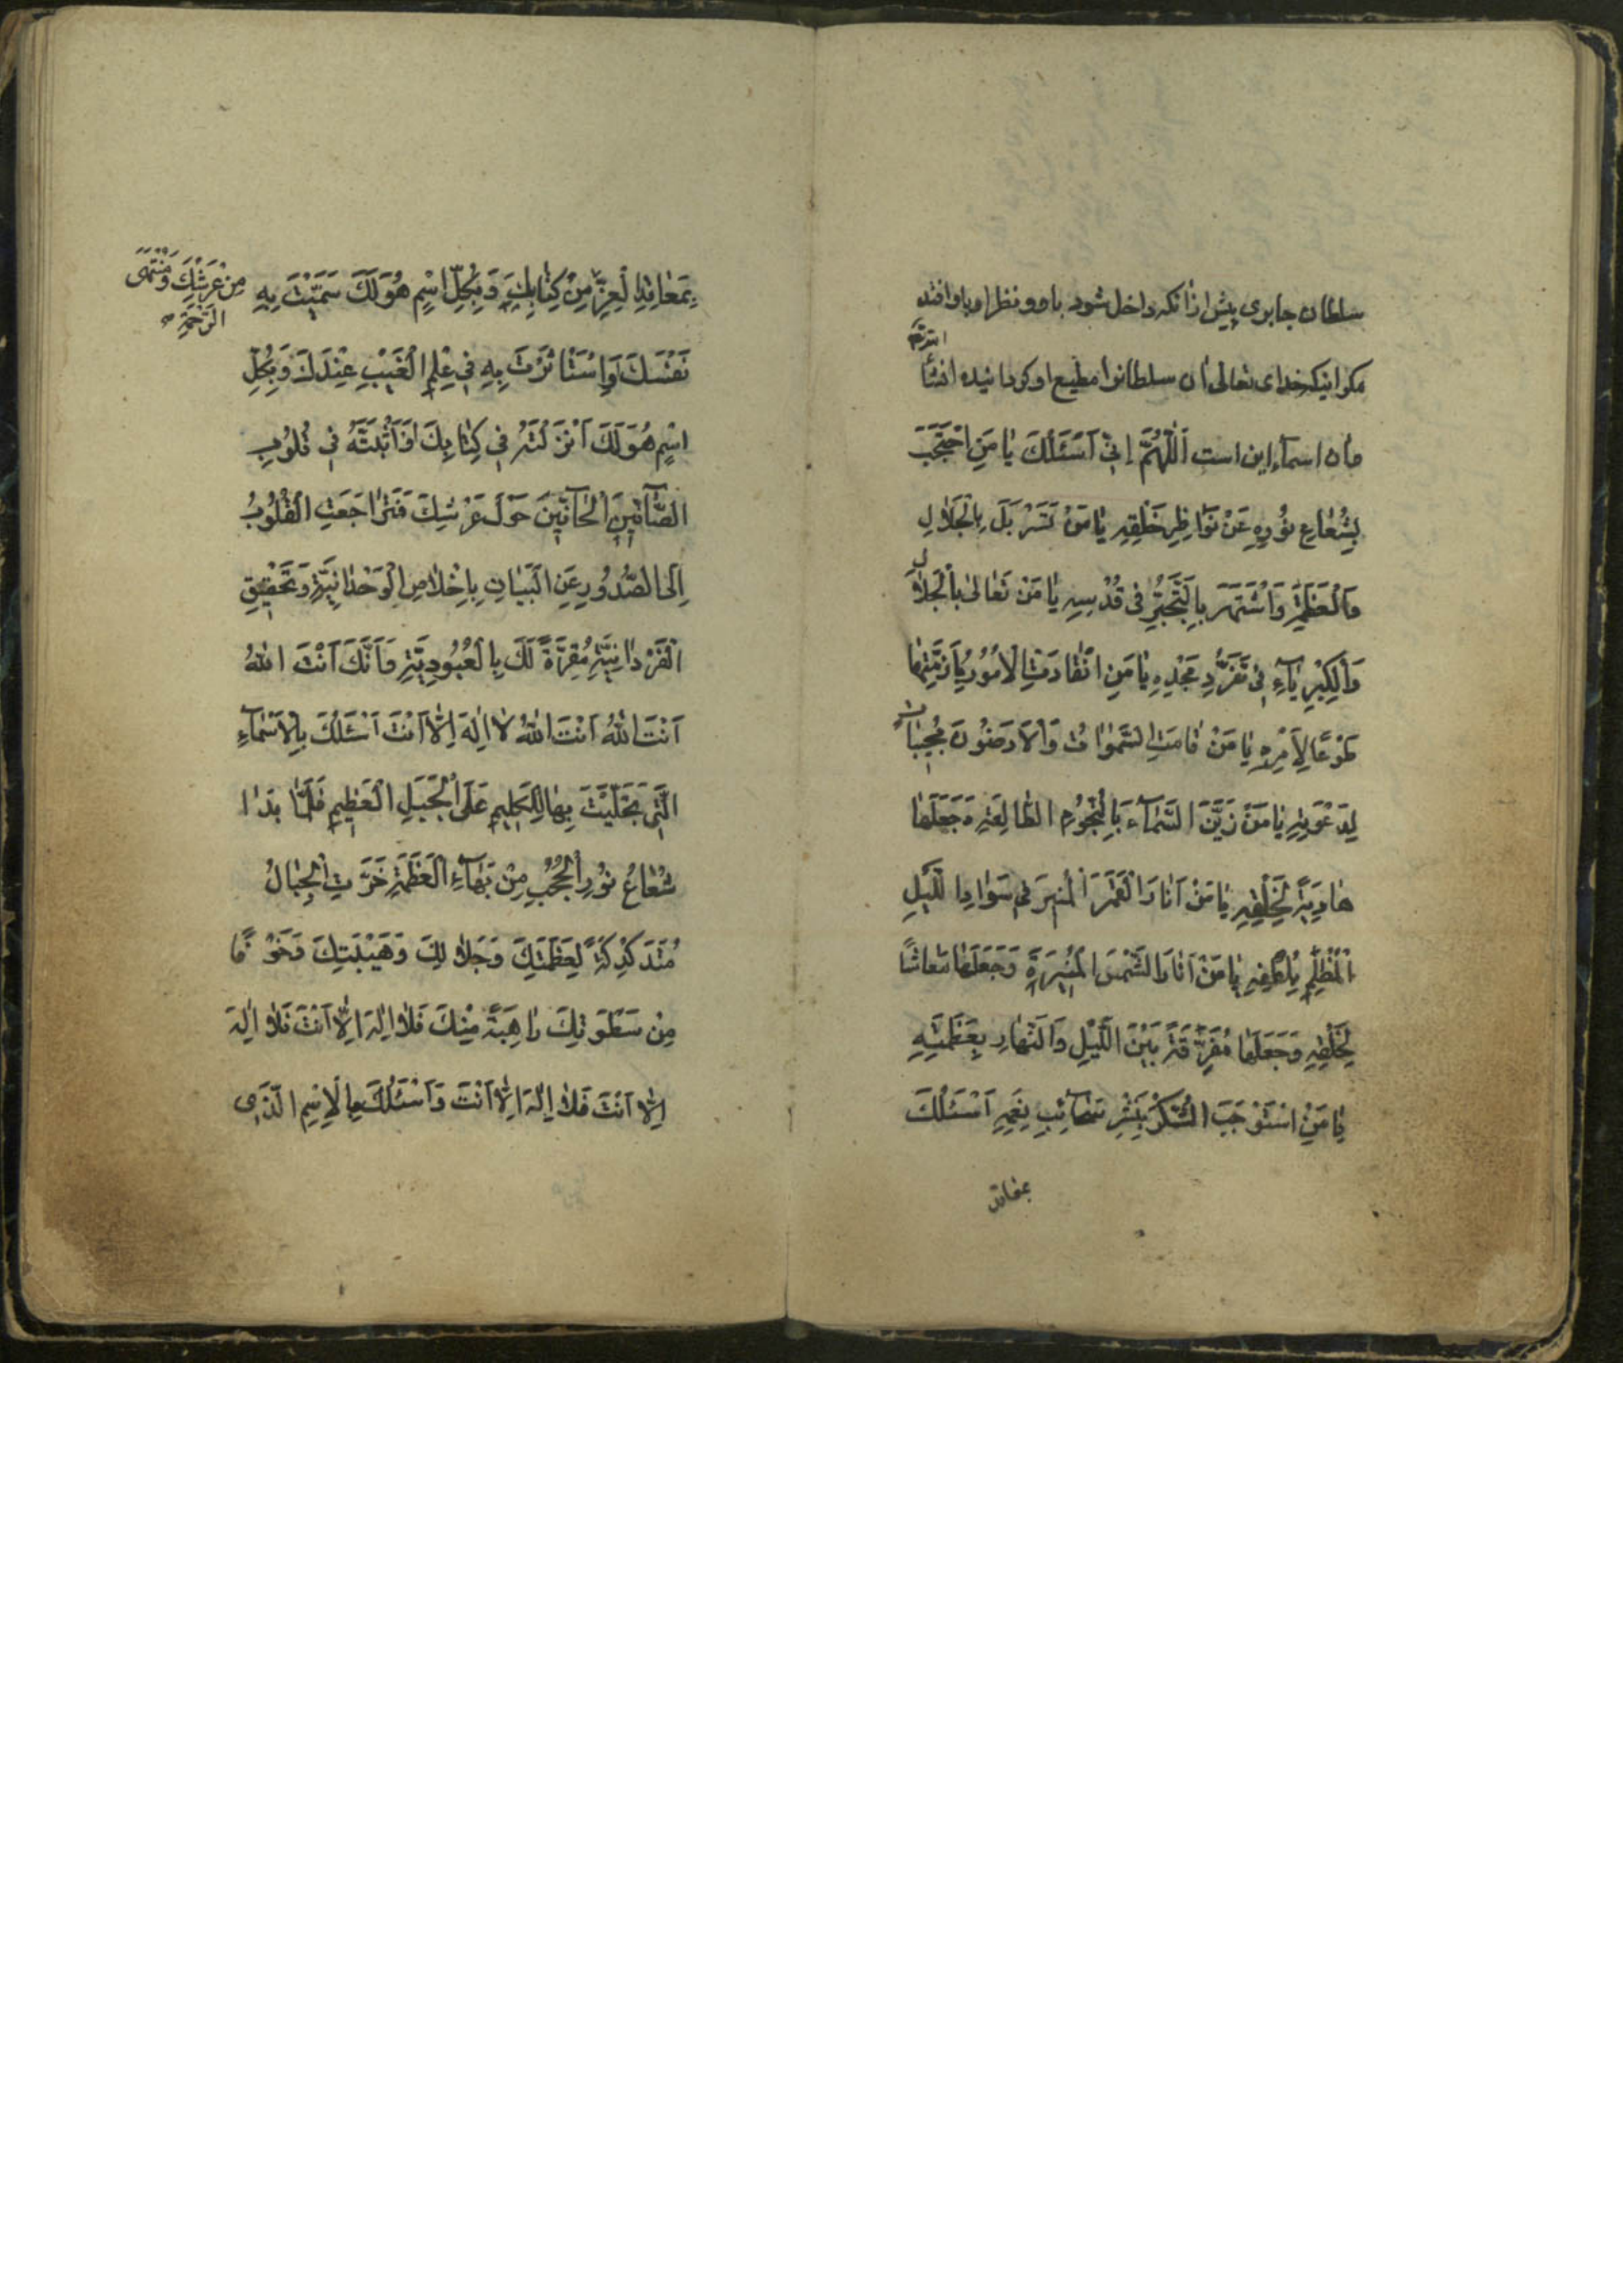 سلطان جابری پیش ازانکه داخل شود باو و نظر او باو افتد
مکر اینکه خدای تعالی ان سلطانرا مطیع او کرداند انشاء
الله تع
وان اسماء این است اَللّٰهُمَّ اِنّی اَسْئَلُكَ یٰا مَنِ احْتَجَبَ
بِشُعٰاعِ نُورِهِ عَنْ نَوٰاظِرِ خَلْقِهِ یٰا مَنْ تَسَرْبَلَ بِالْجَلاٰلِ
وَالْعَظَمَةِ وَاشْتَهَرَ بِالتَّجَبُّرِ فی قُدْسِهِ یٰا مَنْ تَعٰالیٰ بِالْجَلاٰلِ
وَالْكِبْرِیٰآءِ فی تَفَرُّدِ مَجْدِهِ یٰا مَنِ انْقٰادَتِ الْاُمُورُ بِاَزِمَّتِهٰا
طَوْعًا لِاَمْرِهِ یٰا مَنْ قٰامَتِ السَّمٰوٰاتُ وَالْاَرَضُونَ مُجِیبٰاتٍ
لِدَعْوَتِهِ یٰا مَنْ زَیَّنَ السَّمٰآءَ بِالنُّجُومِ الطّٰالِعَةِ وَجَعَلَهٰا
هٰادِیَةً لِخَلْقِهِ یٰا مَنْ اَنٰارَ الْقَمَرَ الْمُنِیرَ فی سَوٰادِ اللَّیْلِ
الْمُظْلِمِ بِلُطْفِهِ یٰا مَنْ اَنٰارَ الشَّمْسَ الْمُنِیرَةَ وَجَعَلَهٰا مَعٰاشًا
لِخَلْقِهِ وَجَعَلَهٰا مُفَرِّقَةً بَیْنَ اللَّیْلِ وَالنَّهٰارِ بِعَظَمَتِهِ
یٰا مَنِ اسْتَوْجَبَ الشُّكْرَ بِنَشْرِ سَحٰآئِبِ نِعَمِهِ اَسْئَلُكَ
بمعاقد
بِمَعٰاقِدِ الْعِزِّ مِنْ كِتٰابِكَ وَبِكُلِّ اسْمٍ هُوَ لَكَ سَمَّیْتَ بِهِ
مِنْ عَرْشِكَ وَمُنْتَهَی
الرَّحْمَةِ
نَفْسَكَ وَاسْتَأْثَرْتَ بِهِ فی عِلْمِ الْغَیْبِ عِنْدَكَ وَبِكُلِّ
اسْمٍ هُوَ لَكَ اَنْزَلْتَهُ فی كِتٰابِكَ اَوْ اَثْبَتَّهُ فی قُلُوبِ
الصّٰآفّینَ الْحٰآفّینَ حَوْلَ عَرْشِكَ فَتَرٰاجَعَتِ الْقُلُوبُ
اِلَی الصُّدُورِ عَنِ الْبَیٰانِ بِاِخْلاٰصِ الْوَحْدٰانِیَّةِ وَتَحْقیقِ
الْفَرْدٰانِیَّةِ مُقِرَّةً لَكَ بِالْعُبُودِیَّةِ وَاَنَّكَ اَنْتَ اللّٰهُ
اَنْتَ اللّٰهُ اَنْتَ اللّٰهُ لاٰ اِلٰهَ اِلاّٰ اَنْتَ اَسْئَلُكَ بِالْاَسْمٰآءِ
الَّتی تَجَلَّیْتَ بِهٰا لِلْكَلِیمِ عَلَی الْجَبَلِ الْعَظِیمِ فَلَمّٰا بَدٰا
شُعٰاعُ نُورِ الْحُجُبِ مِنْ بَهٰآءِ الْعَظَمَةِ خَرَّتِ الْجِبٰالُ
مُتَدَكْدِكَةً لِعَظَمَتِكَ وَجَلاٰلِكَ وَهَیْبَتِكَ وَخَوْفًا
مِنْ سَطْوَتِكَ رٰاهِبَةً مِنْكَ فَلاٰ اِلٰهَ اِلاّٰ اَنْتَ فَلاٰ اِلٰهَ
اِلاّٰ اَنْتَ فَلاٰ اِلٰهَ اِلاّٰ اَنْتَ وَاَسْئَلُكَ بِالْاِسْمِ الَّذی